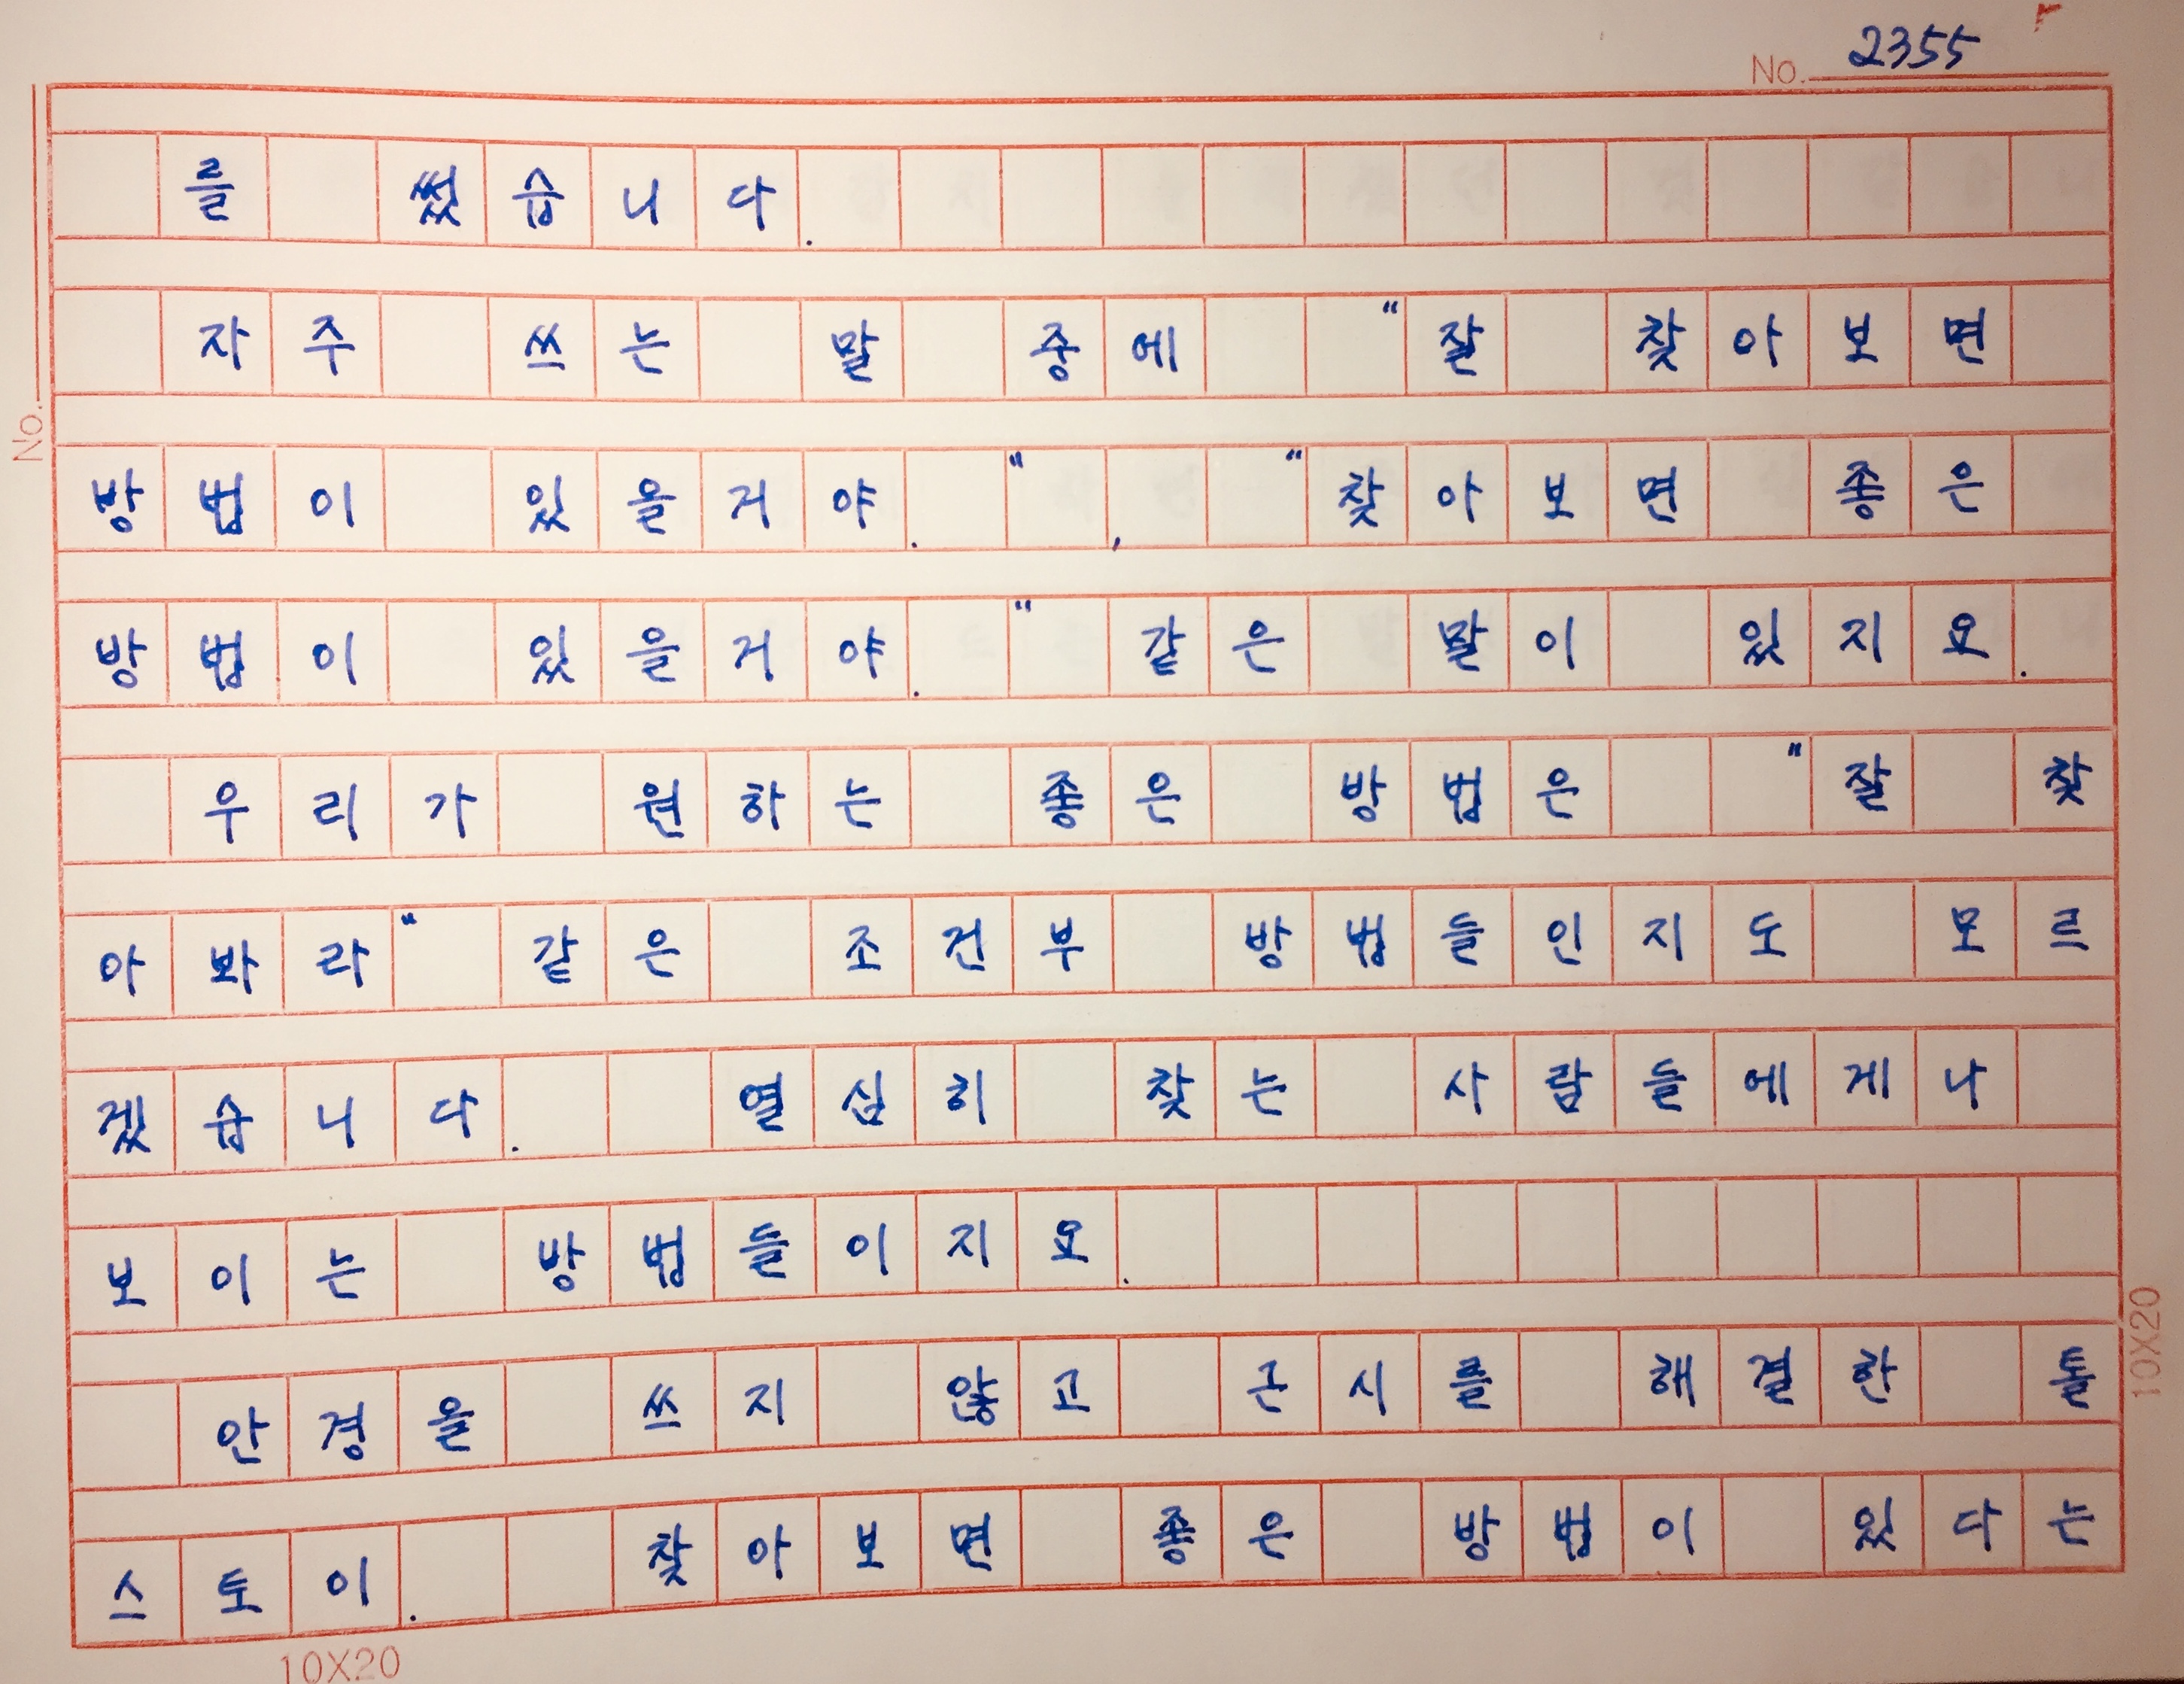 No. 2355
를 썼습니다.
자주 쓰는 말 중에 "잘 찾아보면
No.
방법이 있을거야." , "찾아보면 좋은
방법이 있을거야." 같은 말이 있지요.
우리가 원하는 좋은 방법은 "잘 찾
아봐라" 같은 조건부 방법들인지도 모르
겠습니다. 열심히 찾는 사람들에게나
보이는 방법들이지요.
안경을 쓰지 않고 근시를 해결한 톨
스토이. 찾아보면 좋은 방법이 있다는
10X20
10X20